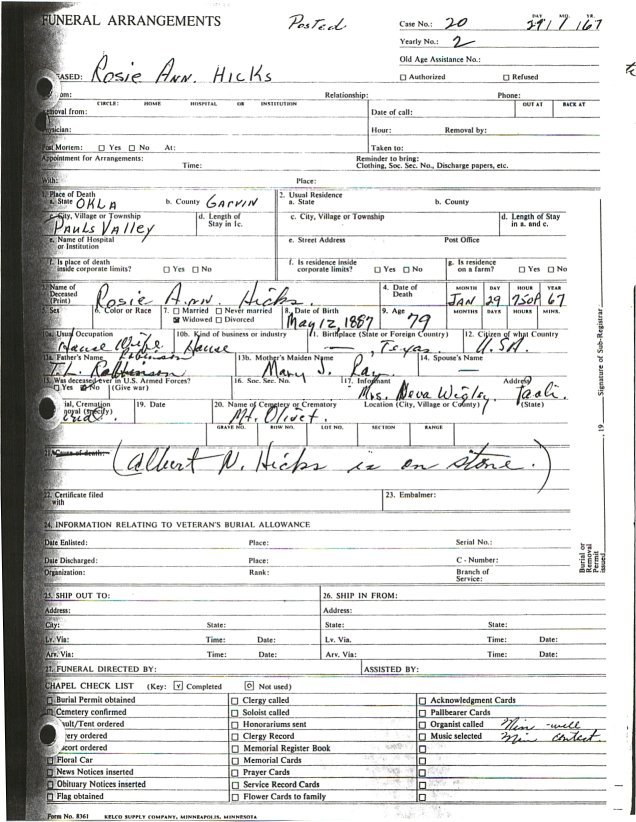 FUNERAL ARRANGEMENTS Posted Case No.: 20 DAY MO. YR.
29/1/67
Yearly No.: 2
Old Age Assistance No.:
ASED: Rosie Ann. Hicks ☐ Authorized ☐ Refused
om: Relationship: Phone:
CIRCLE: HOME HOSPITAL OR INSTITUTION OUT AT BACK AT
moval from: Date of call:
ysician: Hour: Removal by:
Post Mortem: ☐ Yes ☐ No At: Taken to:
Appointment for Arrangements: Reminder to bring:
Time: Clothing, Soc. Sec. No., Discharge papers, etc.
With: Place:
1. Place of Death 2. Usual Residence
a. State OKLA b. County Garvin a. State b. County
c. City, Village or Township d. Length of Stay in 1c. c. City, Village or Township d. Length of Stay in a. and c.
Pauls Valley
e. Name of Hospital or Institution e. Street Address Post Office
f. Is place of death inside corporate limits? ☐ Yes ☐ No f. Is residence inside corporate limits? ☐ Yes ☐ No g. Is residence on a farm? ☐ Yes ☐ No
3. Name of Deceased (Print) Rosie Ann. Hicks. 4. Date of Death MONTH DAY HOUR YEAR
JAN 29 750P 67
5. Sex 6. Color or Race 7. ☐ Married ☐ Never married ☒ Widowed ☐ Divorced 8. Date of Birth 9. Age MONTHS DAYS HOURS MINS.
May 12, 1887 79
10a. Usual Occupation 10b. Kind of business or industry 11. Birthplace (State or Foreign Country) 12. Citizen of what Country
House Wife House —, Texas. U.SA.
13a. Father's Name Robinson 13b. Mother's Maiden Name 14. Spouse's Name
T.L. Robbinson Mary J. Ray. —
15. Was deceased ever in U.S. Armed Forces? 16. Soc. Sec. No. 17. Informant Address
☐ Yes ☒ No (Give war) Mrs. Neva Wigley. Paoli.
ial, Cremation 19. Date 20. Name of Cemetery or Crematory Location (City, Village or County) (State)
noval (Specify) Mt. Olivet.
GRAVE NO. ROW NO. LOT NO. SECTION RANGE
21. Cause of death:
(Albert N. Hicks is on stone.)
22. Certificate filed with 23. Embalmer:
24. INFORMATION RELATING TO VETERAN'S BURIAL ALLOWANCE
Date Enlisted: Place: Serial No.:
Date Discharged: Place: C - Number:
Organization: Rank: Branch of Service:
25. SHIP OUT TO: 26. SHIP IN FROM:
Address: Address:
City: State: State: State:
Lv. Via: Time: Date: Lv. Via. Time: Date:
Arv. Via: Time: Date: Arv. Via: Time: Date:
27. FUNERAL DIRECTED BY: ASSISTED BY:
CHAPEL CHECK LIST (Key: ☑ Completed ☐ Not used)
☐ Burial Permit obtained ☐ Clergy called ☐ Acknowledgment Cards
☐ Cemetery confirmed ☐ Soloist called ☐ Pallbearer Cards
ault/Tent ordered ☐ Honorariums sent ☐ Organist called Min - will
ery ordered ☐ Clergy Record ☐ Music selected Min contact.
scort ordered ☐ Memorial Register Book ☐
☐ Floral Car ☐ Memorial Cards ☐
☐ News Notices inserted ☐ Prayer Cards ☐
☐ Obituary Notices inserted ☐ Service Record Cards ☐
☐ Flag obtained ☐ Flower Cards to family ☐
Form No. 8361 KELCO SUPPLY COMPANY, MINNEAPOLIS, MINNESOTA
Burial or Removal Permit issued , 19 Signature of Sub-Registrar